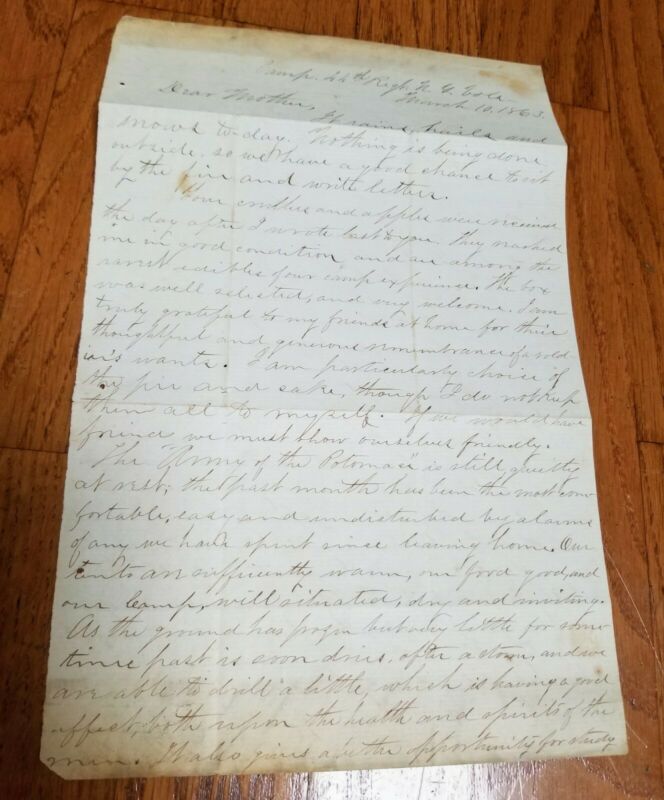 Camp. 44th Regt. N. Y. Vols.
March 10. 1863.
Dear Mother,
It rains, hails and
snows to-day. Nothing is being done
outside, so we have a good chance to sit
by the fire and write letter.
Your and apples were received
the day after I wrote last to you. They reached
me in good condition, and are among the
rarest edibles of our camp experience. The box
was well selected, and very welcome. I am
truly grateful to my friends at home for their
thoughtful and generous remembrance of a sold-
ier's wants. I am particularly choice of
the pie and cake, though I do not keep
them all to myself. If we would have
friend we must show ourselves friendly.
The "Army of the Potomac" is still quietly
at rest; the past month has been the most com-
fortable, easy and undisturbed by alarms
of any we have spent since leaving home. Our
tents are sufficiently warm, our food good, and
our Camp, well situated, dry and inviting.
As the ground has frozen but very little for some
time past is soon dries, after a storm, and we
are able to drill a little, which is having a good
effect, both upon the health and spirits of the
men. It also gives a better opportunity for study